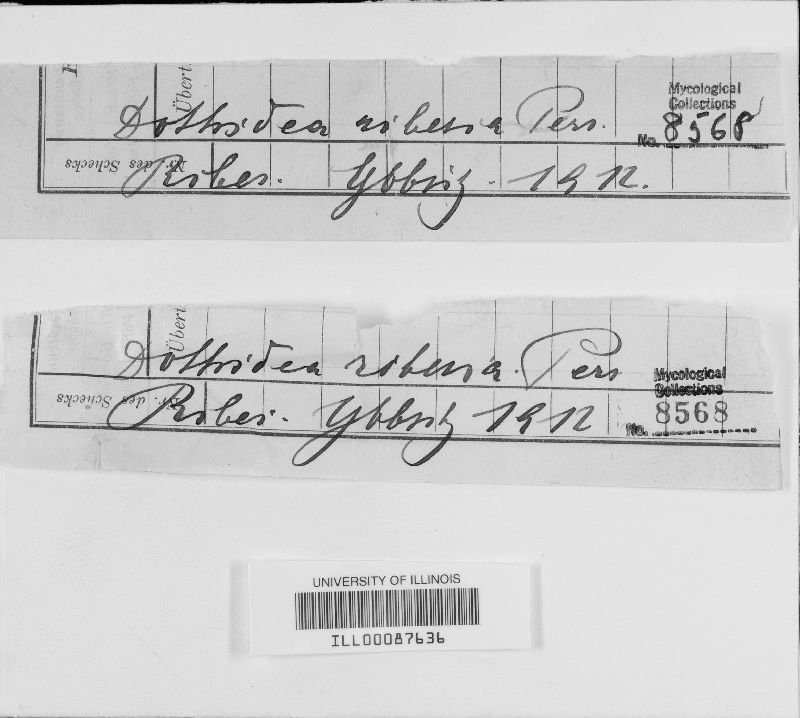 Übert
Dothidea ribesia Pers.
Mycological
Collections
No. 8568
Nr. des Schecks
Ribes. Ybbsitz. 1912.
Übert
Dothidea ribesia. Pers
Mycological
Collections
No. 8568
Nr. des Schecks
Ribes. Ybbsitz 1912
UNIVERSITY OF ILLINOIS
ILL00087636